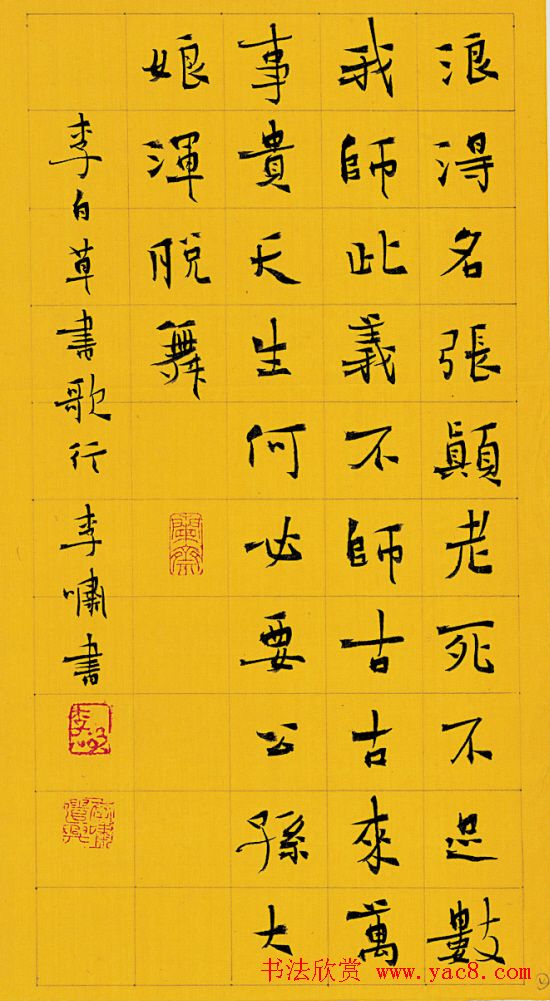 浪得名張顛老死不足數
我師此義不師古古來萬
事貴天生何必要公孫大
娘渾脫舞
李白草書歌行 李嘯書
书法欣赏 www.yac8.com